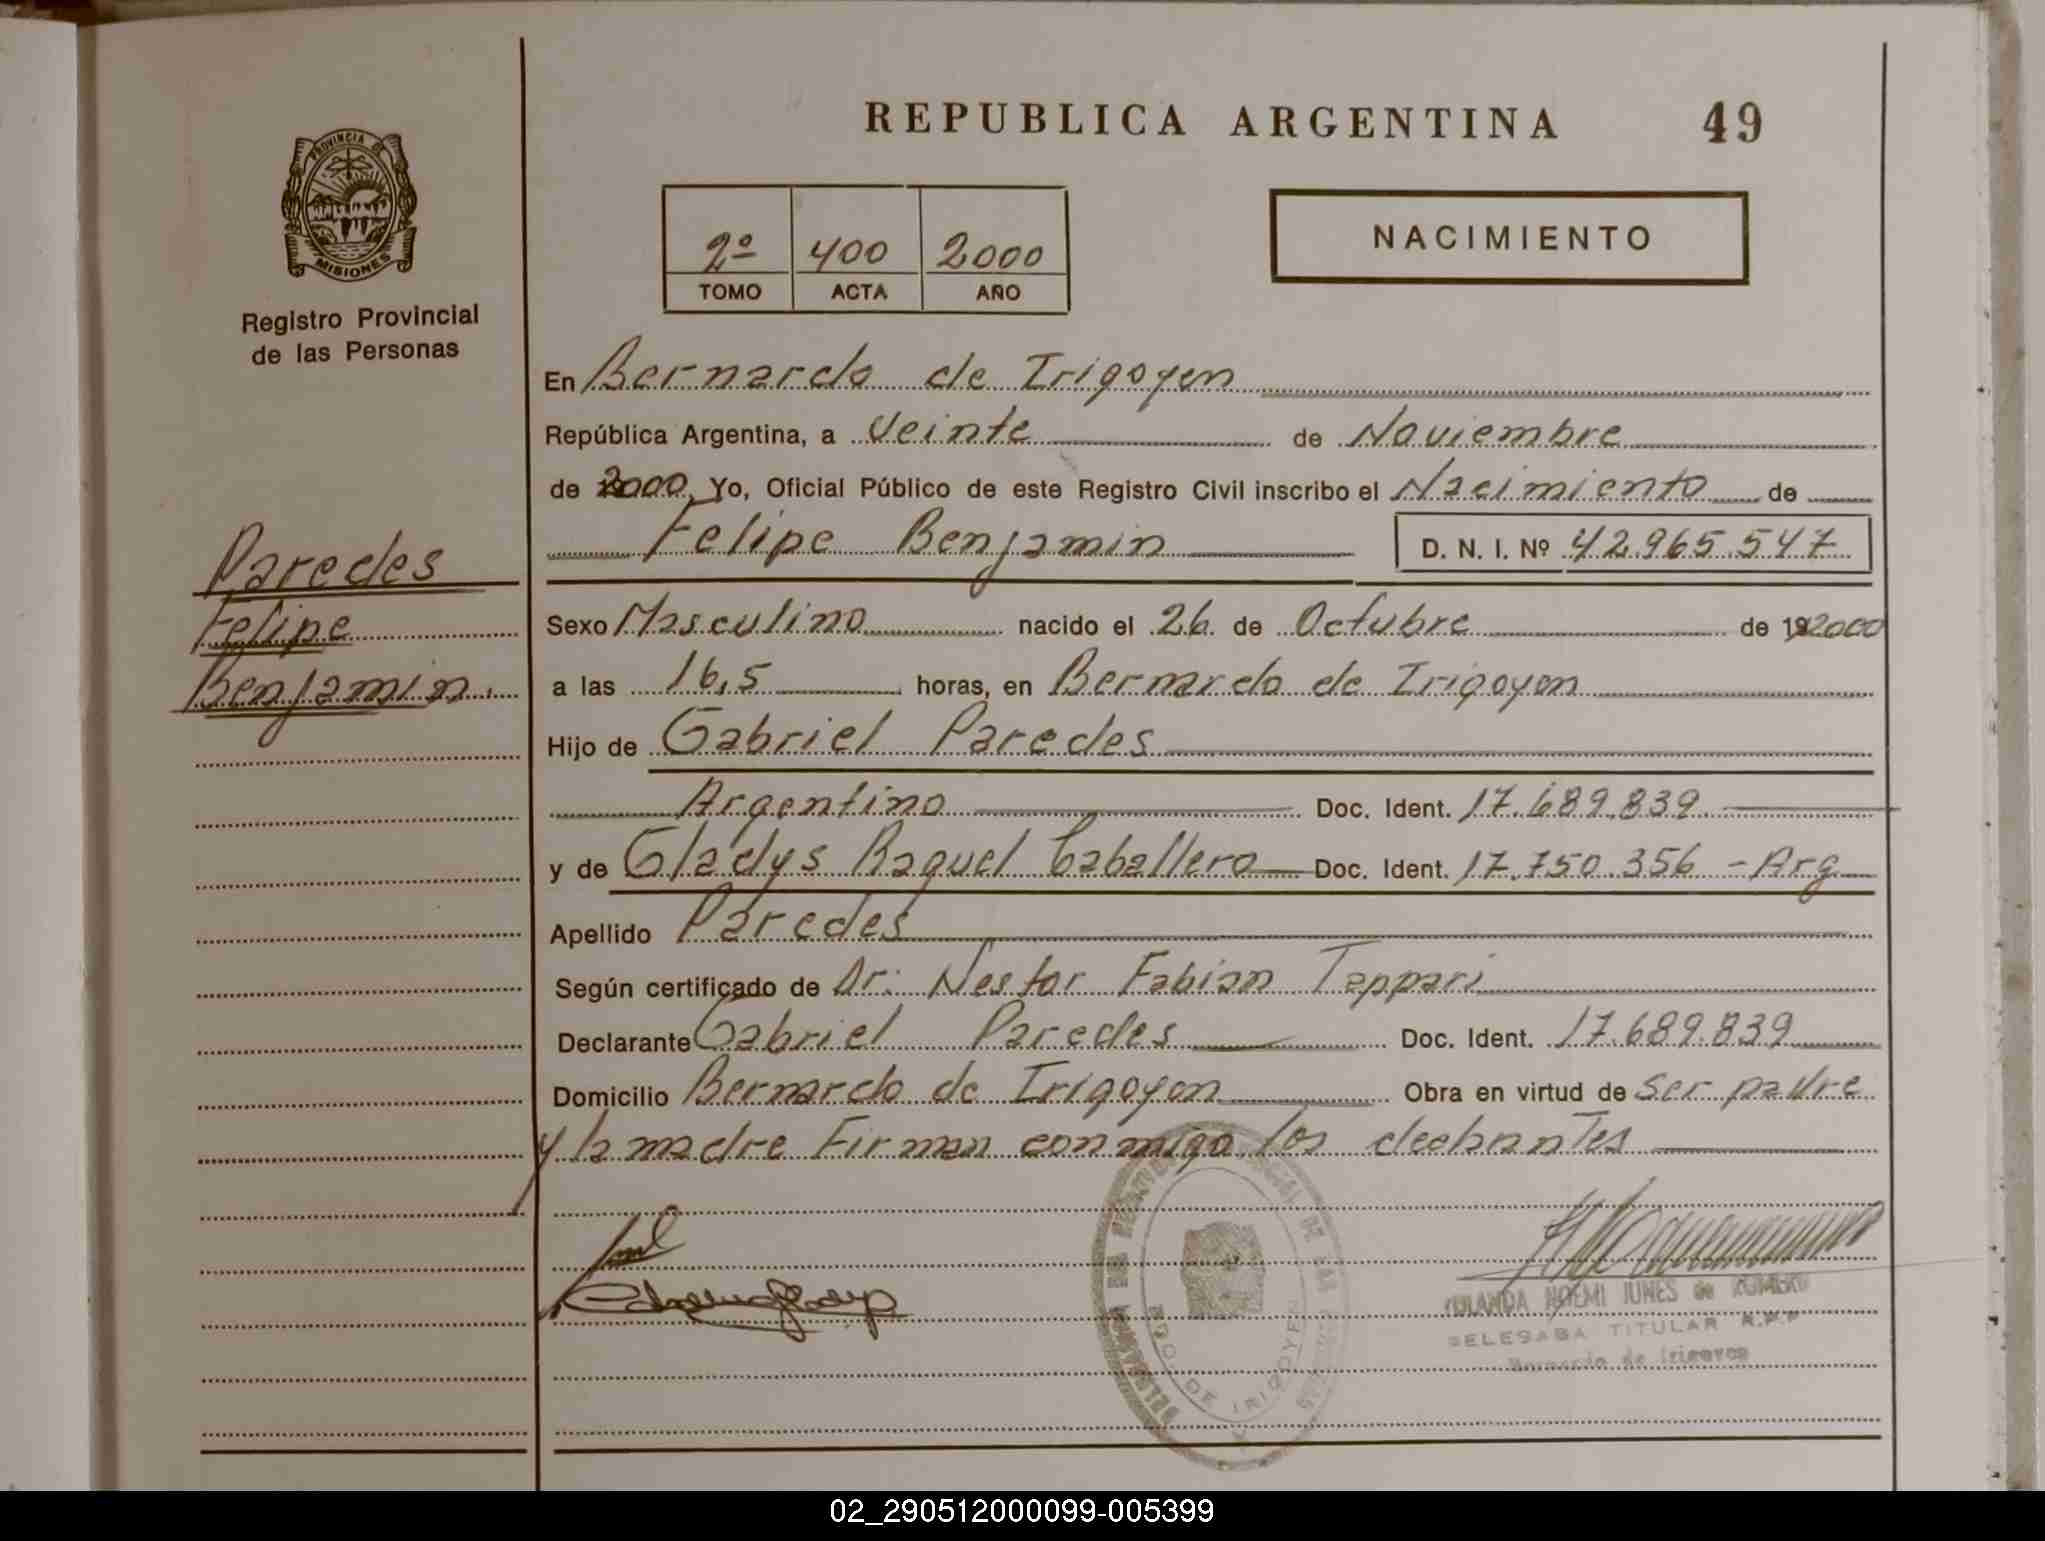 REPUBLICA ARGENTINA 49
PROVINCIA DE
MISIONES
Registro Provincial
de las Personas
2º 400 2000
TOMO ACTA AÑO
NACIMIENTO
En Bernardo de Irigoyen
República Argentina, a Veinte de Noviembre
de 2000, Yo, Oficial Público de este Registro Civil inscribo el Nacimiento de
Felipe Benjamin D. N. I. Nº 42.965.547
Paredes
Felipe
Benjamin.
Sexo Masculino nacido el 26 de Octubre de 192000
a las 16,5 horas, en Bernardo de Irigoyen
Hijo de Gabriel Paredes
Argentino Doc. Ident. 17.689.839
y de Gladys Raquel Caballero Doc. Ident. 17.750.356 - Arg
Apellido Paredes
Según certificado de Dr: Nestor Fabian Tappari
Declarante Gabriel Paredes Doc. Ident. 17.689.839
Domicilio Bernardo de Irigoyen Obra en virtud de ser padre
y la madre Firman conmigo los declarantes
YOLANDA NOEMI JUNES de ROMERO
DELEGADA TITULAR R.P.P
Bernardo de Irigoyen
BDO. DE IRIGOYEN
02_290512000099-005399